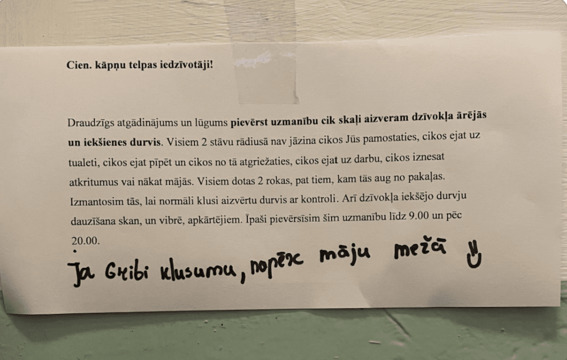 Cien. kāpņu telpas iedzīvotāji!
Draudzīgs atgādinājums un lūgums pievērst uzmanību cik skaļi aizveram dzīvokļa ārējās
un iekšienes durvis. Visiem 2 stāvu rādiusā nav jāzina cikos Jūs pamostaties, cikos ejat uz
tualeti, cikos ejat pīpēt un cikos no tā atgriežaties, cikos ejat uz darbu, cikos iznesat
atkritumus vai nākat mājās. Visiem dotas 2 rokas, pat tiem, kam tās aug no pakaļas.
Izmantosim tās, lai normāli klusi aizvērtu durvis ar kontroli. Arī dzīvokļa iekšējo durvju
dauzīšana skan, un vibrē, apkārtējiem. Īpaši pievērsīsim šim uzmanību līdz 9.00 un pēc
20.00.
Ja Gribi klusumu, nopērc māju mežā